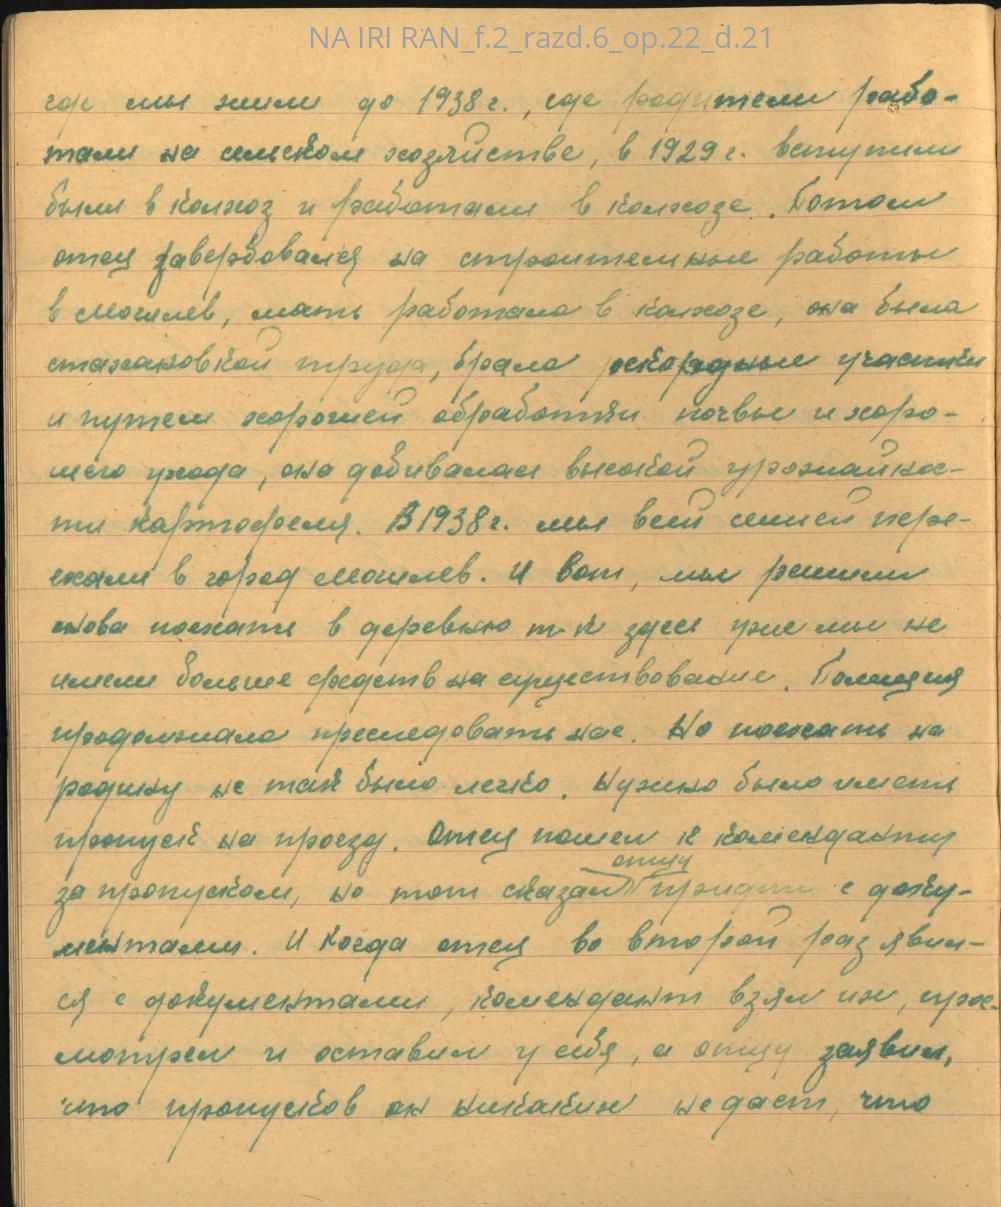 NA IRI RAN_f.2_razd.6_op.22_d.21
где мы жили до 1938 г., где родители рабо-
тали на сельском хозяйстве, в 1929 г. вступили
были в колхоз и работали в колхозе. Потом
отец завербовался на строительные работы
в Могилев, мать работала в колхозе, она была
стахановкой труда, брала рекордные участки
и путем хорошей обработки почвы и хоро-
шего ухода, она добивалась высокой урожайнос-
ти картофеля. В 1938 г. мы всей семьей пере-
ехали в город Могилев. И вот, мы решили
снова поехать в деревню т.к здесь уже мы не
имели больше средств на существование. Полиция
продолжала преследовать нас. Но поехать на
родину не так было легко. Нужно было иметь
пропуск на проезд. Отец пошел к коменданту
отцу
за пропуском, но тот сказал придти с доку-
ментами. И когда отец во второй раз явил-
ся с документами, комендант взял их, прос-
мотрел и оставил у себя, а отцу заявил,
что пропусков он никаких не даст, что